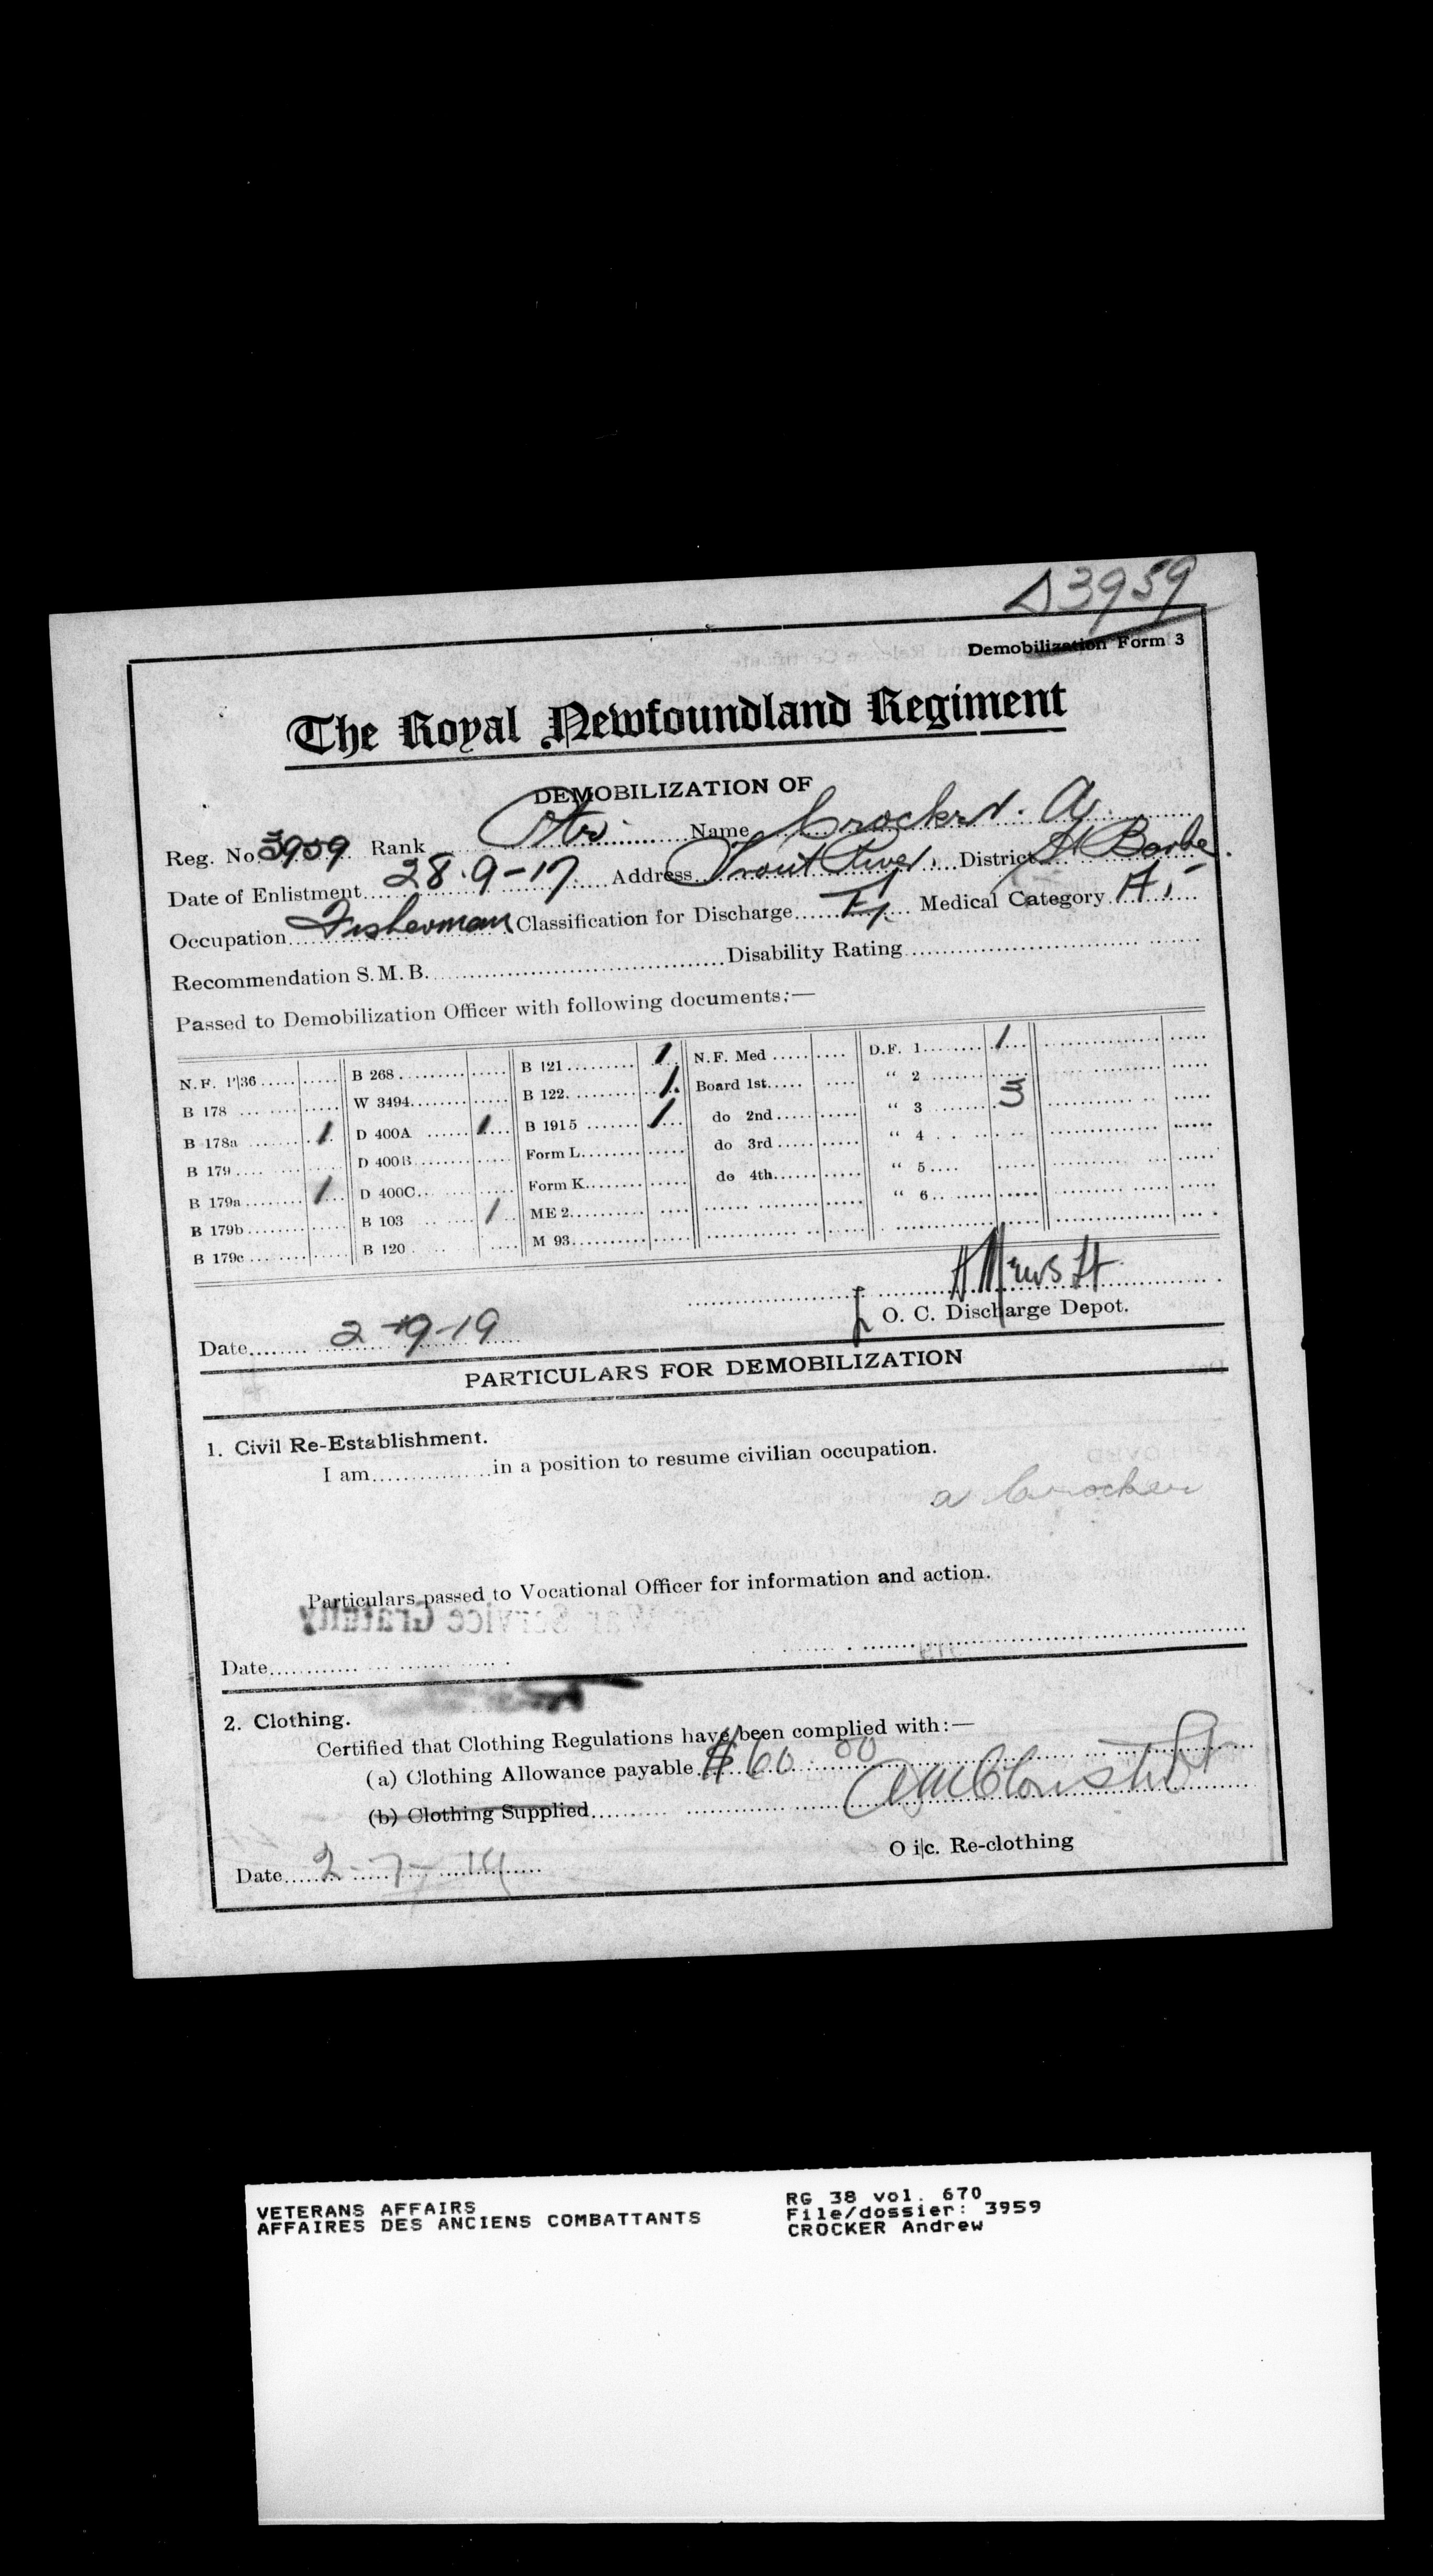 D3959
Demobilization Form 3
The Royal Newfoundland Regiment
DEMOBILIZATION OF
Reg. No. 3959 Rank Pte. Name Crocker. A.
Date of Enlistment 28.9-17. Address Trout River. District St Barbe.
Occupation Fisherman Classification for Discharge Medical Category A1
Recommendation S.M.B. Disability Rating
Passed to Demobilization Officer with following documents:—
N.F. P|36 B 268 B 121 1 N.F. Med D.F. 1 1
B 178 W 3494 B 122 1. Board 1st “ 2
B 178a 1 D 400A 1 B 1915 1 do 2nd “ 3 3
B 179 D 400B Form L do 3rd “ 4
B 179a 1 D 400C Form K do 4th “ 5
B 179b B 103 1 ME 2 “ 6
B 179c B 120 M 93
O. C. Discharge Depot.
Date 2-9-19
PARTICULARS FOR DEMOBILIZATION
1. Civil Re-Establishment.
I am in a position to resume civilian occupation.
a Crocker
Particulars passed to Vocational Officer for information and action.
War Service Gratuity
Date
2. Clothing.
Certified that Clothing Regulations have been complied with:—
(a) Clothing Allowance payable $60.00
(b) Clothing Supplied
O i|c. Re-clothing
Date 2-7-19
VETERANS AFFAIRS
AFFAIRES DES ANCIENS COMBATTANTS
RG 38 vol. 670
File/dossier: 3959
CROCKER Andrew